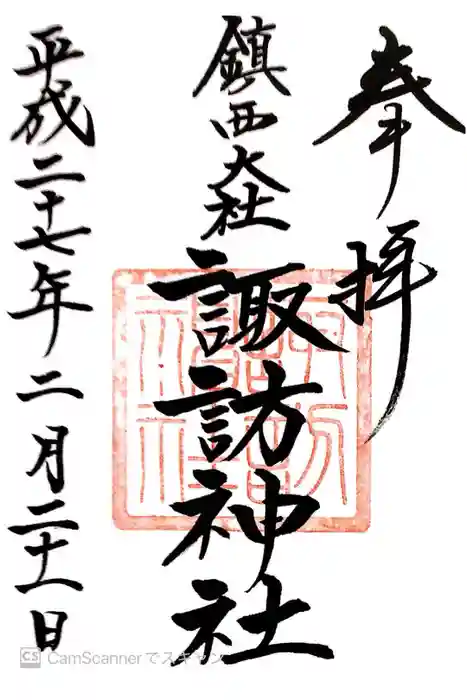 奉拝
鎮西大社
諏訪神社
平成二十七年二月二十一日
CS CamScannerでスキャン